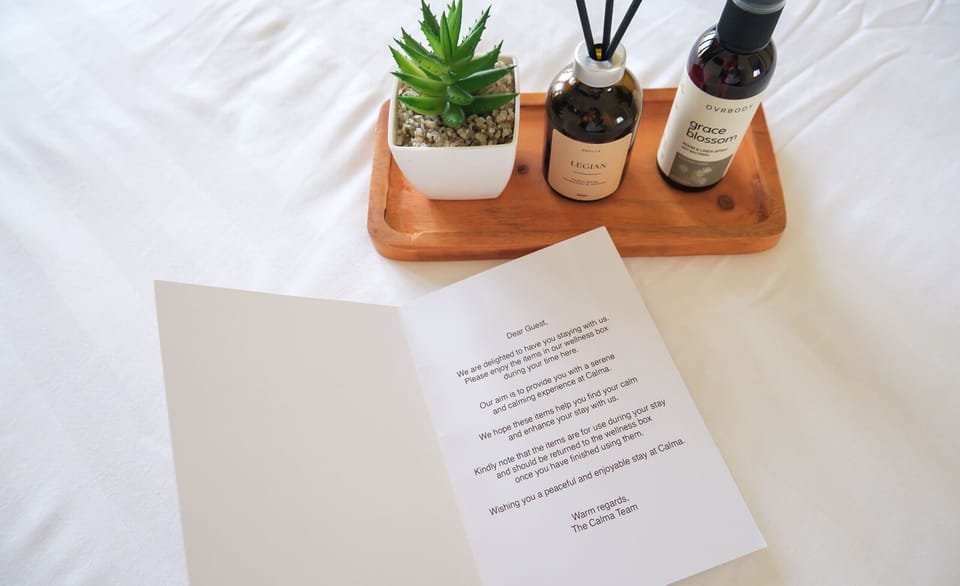 OVRBODY
grace
blossom
ROOM & LINEN SPRAY
LEGIAN
Dear Guest,
We are delighted to have you staying with us.
Please enjoy the items in our wellness box
during your time here.
Our aim is to provide you with a serene
and calming experience at Calma.
We hope these items help you find your calm
and enhance your stay with us.
Kindly note that the items are for use during your stay
and should be returned to the wellness box
once you have finished using them.
Wishing you a peaceful and enjoyable stay at Calma.
Warm regards,
The Calma Team